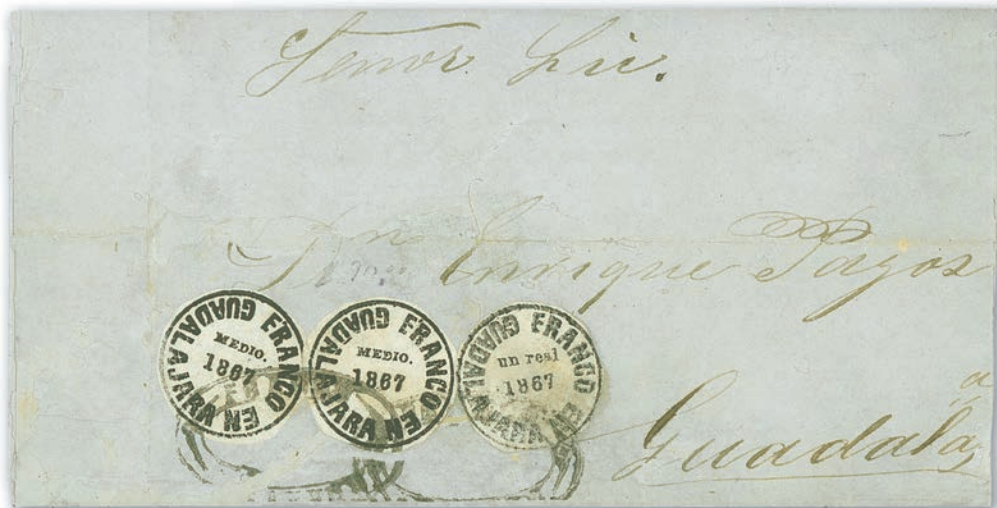 Señor Lic.
Dn Enrique Pazos
FRANCO EN GUADALAJARA
MEDIO.
1867
FRANCO EN GUADALAJARA
MEDIO.
1867
FRANCO EN GUADALAJARA
un real
1867
Guadalaª